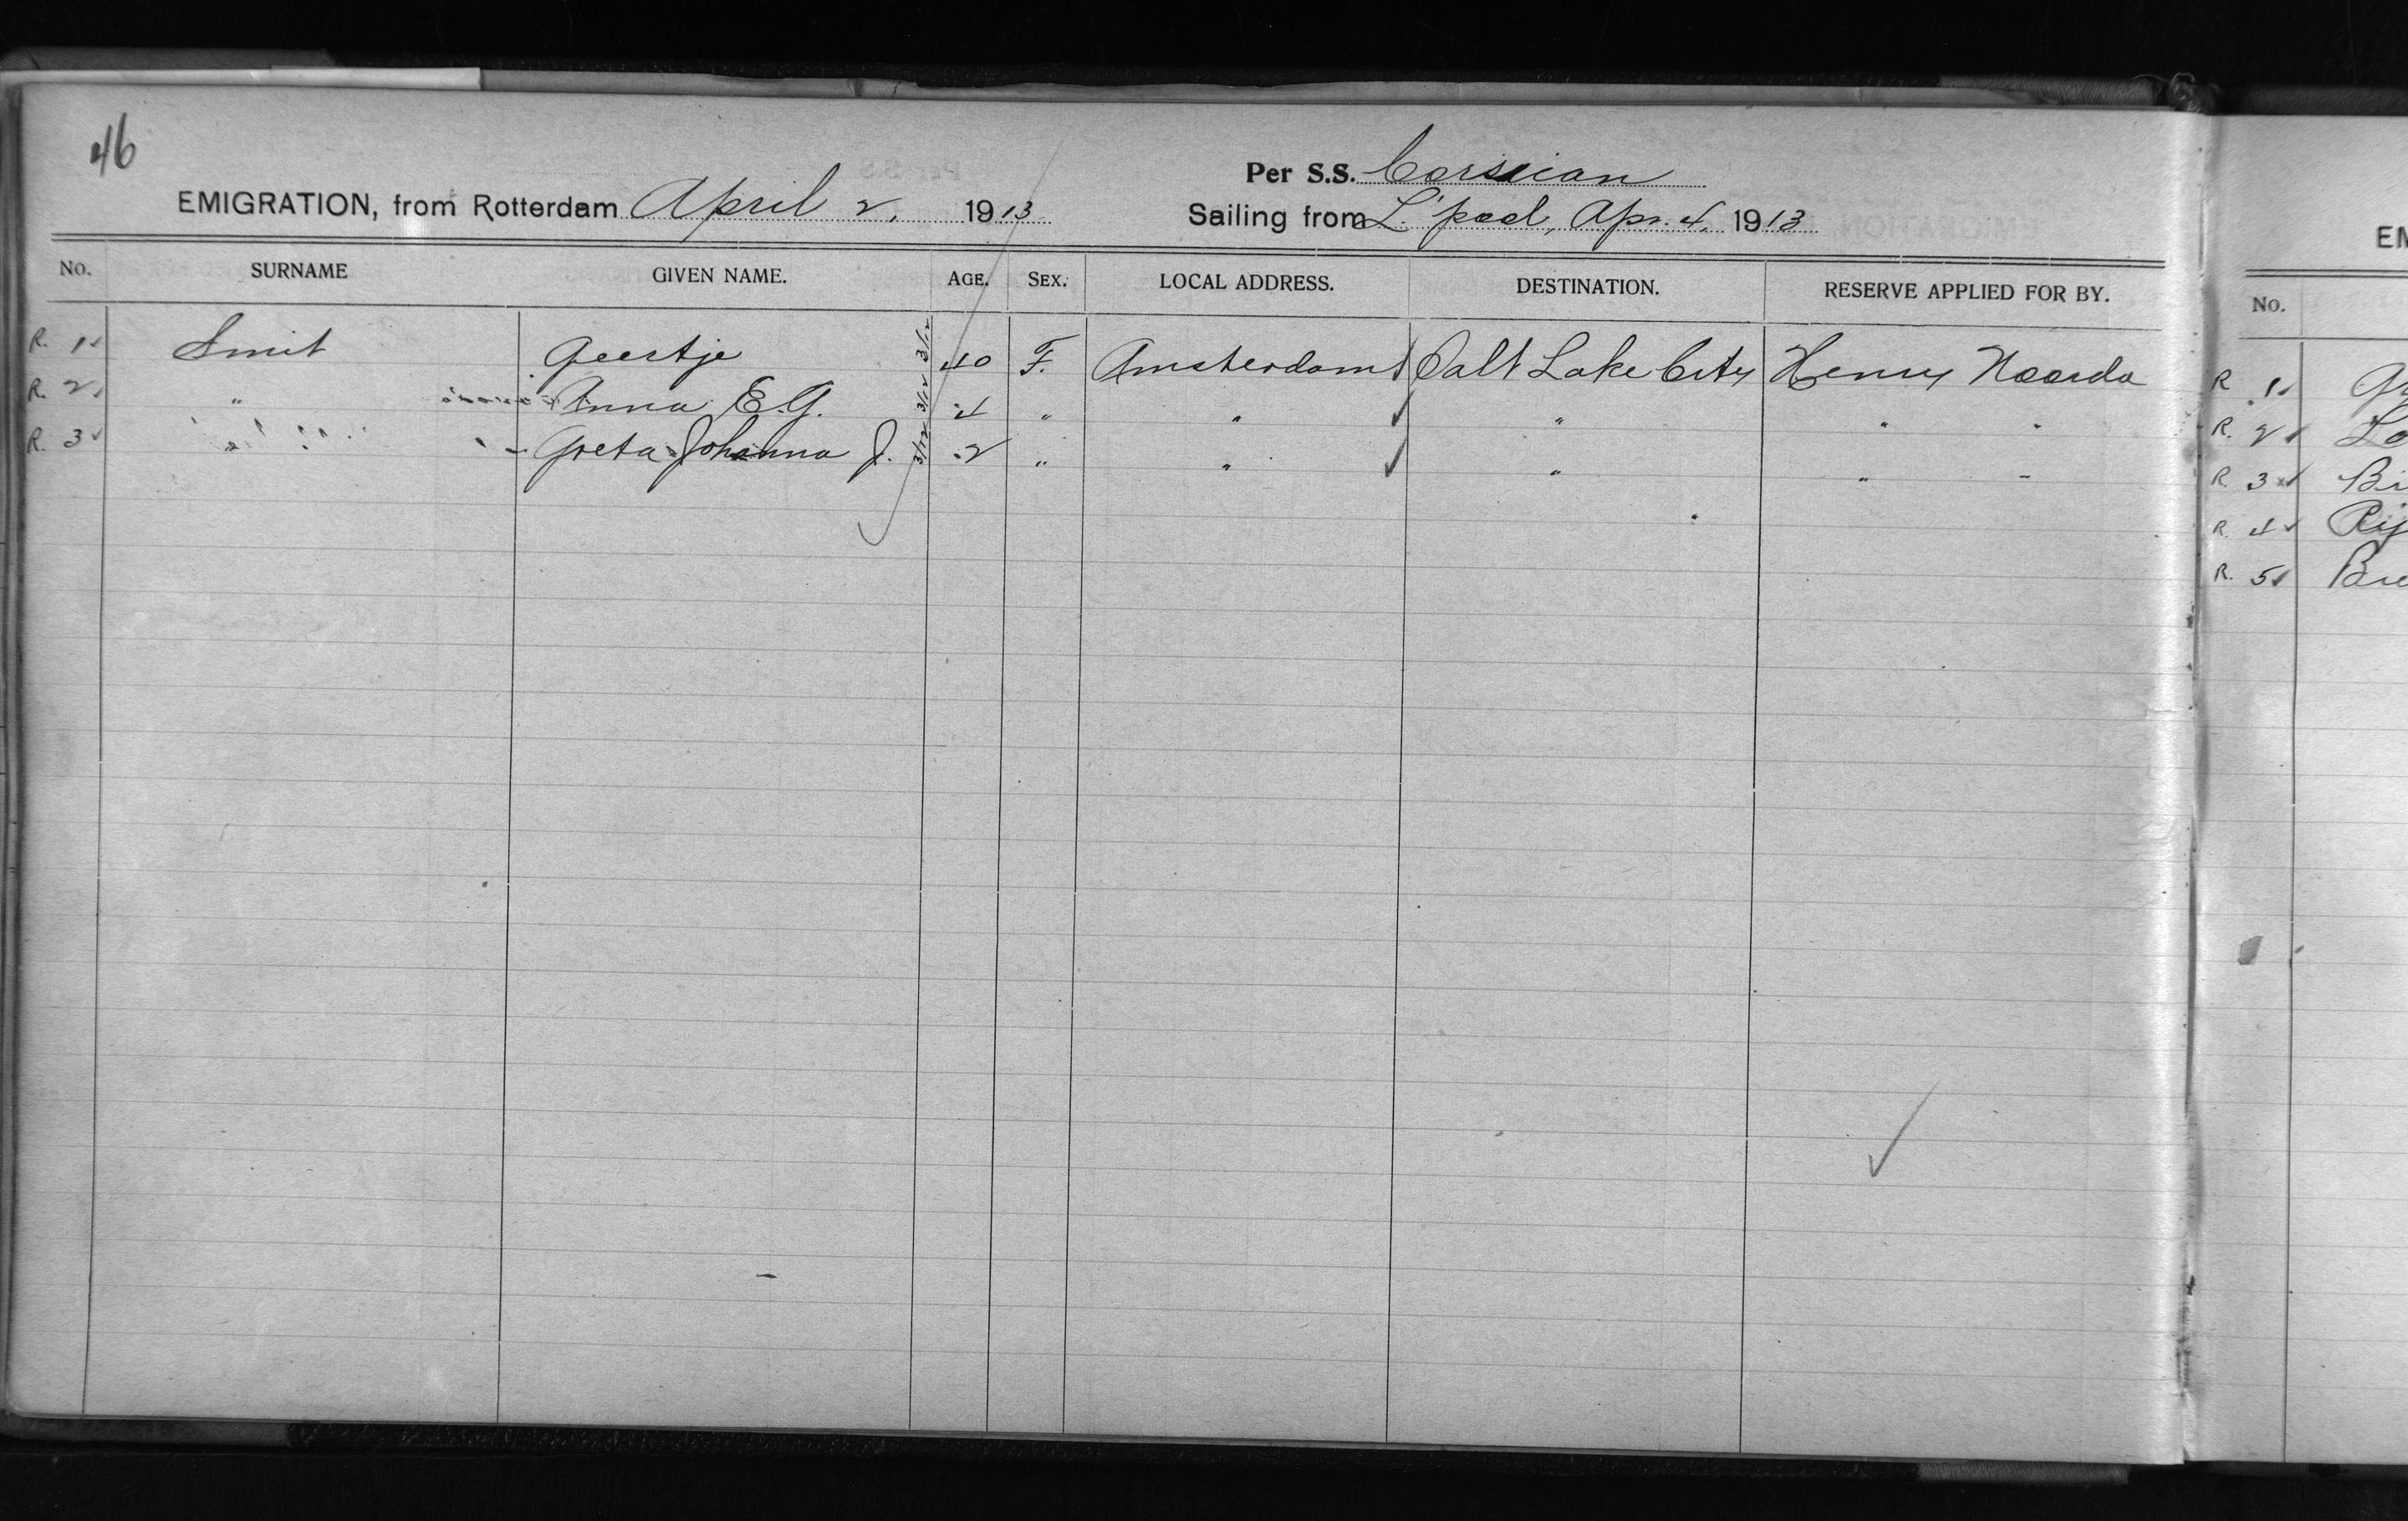 46
Per S.S. Corsican
EMIGRATION, from Rotterdam April 2, 1913
Sailing from L'pool, Apr. 4, 1913
No. SURNAME GIVEN NAME. AGE. SEX. LOCAL ADDRESS. DESTINATION. RESERVE APPLIED FOR BY.
R. 1 Smit Geertje 3/12 40 F. Amsterdam Salt Lake City Henry Noorda
R. 2 " Anna E.G. 3/12 4 " " " " "
R. 3 " Greta Johanna J. 3/12 2 " " " " "
EM
No.
R 1
R. 2 Lo
R. 3 Br
R. 4 Rij
R. 5 Bre